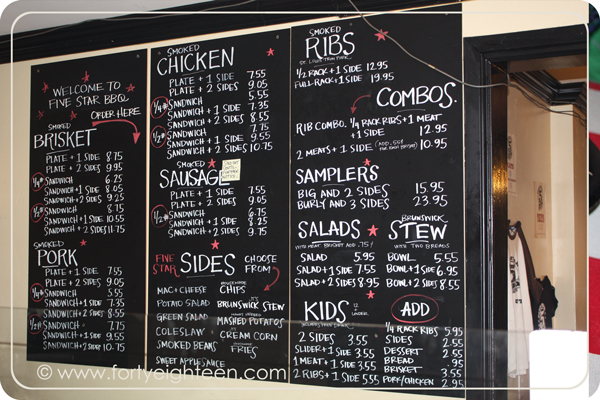 WELCOME TO
FIVE STAR BBQ
ORDER HERE
SMOKED
BRISKET
PLATE + 1 SIDE 8.75
PLATE + 2 SIDES 9.95
1/4# SANDWICH 6.25
SANDWICH + 1 SIDE 8.05
SANDWICH + 2 SIDES 9.25
1/2# SANDWICH 8.75
SANDWICH + 1 SIDE 10.55
SANDWICH + 2 SIDES 11.75
SMOKED
PORK
PLATE + 1 SIDE 7.55
PLATE + 2 SIDES 9.05
1/4# SANDWICH 5.55
SANDWICH + 1 SIDE 7.35
SANDWICH + 2 SIDES 8.55
1/2# SANDWICH 7.75
SANDWICH + 1 SIDE 9.55
SANDWICH + 2 SIDES 10.75
SMOKED
CHICKEN
PLATE + 1 SIDE 7.55
PLATE + 2 SIDES 9.05
1/4# SANDWICH 5.55
SANDWICH + 1 SIDE 7.35
SANDWICH + 2 SIDES 8.55
1/2# SANDWICH 7.75
SANDWICH + 1 SIDE 9.55
SANDWICH + 2 SIDES 10.75
SMOKED
SAUSAGE
PLATE + 1 SIDE 7.55
PLATE + 2 SIDES 9.05
1/2# SANDWICH 6.75
SANDWICH + 1 SIDE 8.25
SANDWICH + 2 SIDES 9.75
FIVE STAR SIDES CHOOSE FROM
MAC + CHEESE
POTATO SALAD
GREEN SALAD
COLESLAW
SMOKED BEANS
SWEET APPLESAUCE
CHIPS
BRUNSWICK STEW
MASHED POTATOES
CREAM CORN
FRIES
SMOKED
RIBS
ST. LOUIS TRIM PORK
1/2 RACK + 1 SIDE 12.95
FULL RACK + 1 SIDE 19.95
COMBOS.
RIB COMBO. 1/4 RACK RIBS + 1 MEAT
+ 1 SIDE 12.95
2 MEATS + 1 SIDE 10.95
SAMPLERS
BIG AND 2 SIDES 15.95
BURLY AND 3 SIDES 23.95
SALADS
WITH MEAT BRISKET ADD .75!
SALAD 5.95
SALAD + 1 SIDE 7.55
SALAD + 2 SIDES 8.55
BRUNSWICK
STEW
WITH TWO BREADS
BOWL 5.55
BOWL + 1 SIDE 6.95
BOWL + 2 SIDES 8.55
KIDS
12 UNDER
2 SIDES 3.55
SLIDER + 1 SIDE 3.55
1 MEAT + 1 SIDE 3.55
2 RIBS + 1 SIDE 5.55
ADD
1/4 RACK RIBS 5.95
SIDES 2.55
DESSERT 2.95
BREAD .95
BRISKET 3.55
PORK/CHICKEN 2.95
© www.fortyeighteen.com